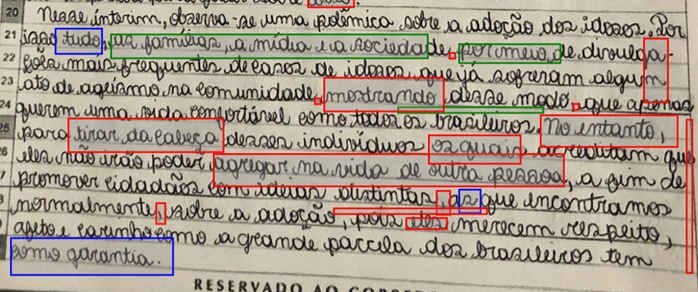 20 Nesse ínterim, observa-se uma polêmica sobre a adoção dos idosos. Por
21 isso tudo, as famílias, a mídia e a sociedade, por meio de divulga-
22 ções mais frequentes de casos de idosos, que já sofreram algum
23 ato de ageísmo na comunidade, mostrando, desse modo, que apenas
24 querem uma vida confortável como todos os brasileiros. No entanto,
25 para tirar da cabeça desses indivíduos os quais, acreditam que
eles não irão poder, agregar na vida de outra pessoa, a fim de
promover cidadãos com ideias distintas, as que encontramos
normalmente, sobre a adoção, pois eles merecem respeito,
afeto e carinho como a grande parcela dos brasileiros tem
como garantia.
RESERVADO AO